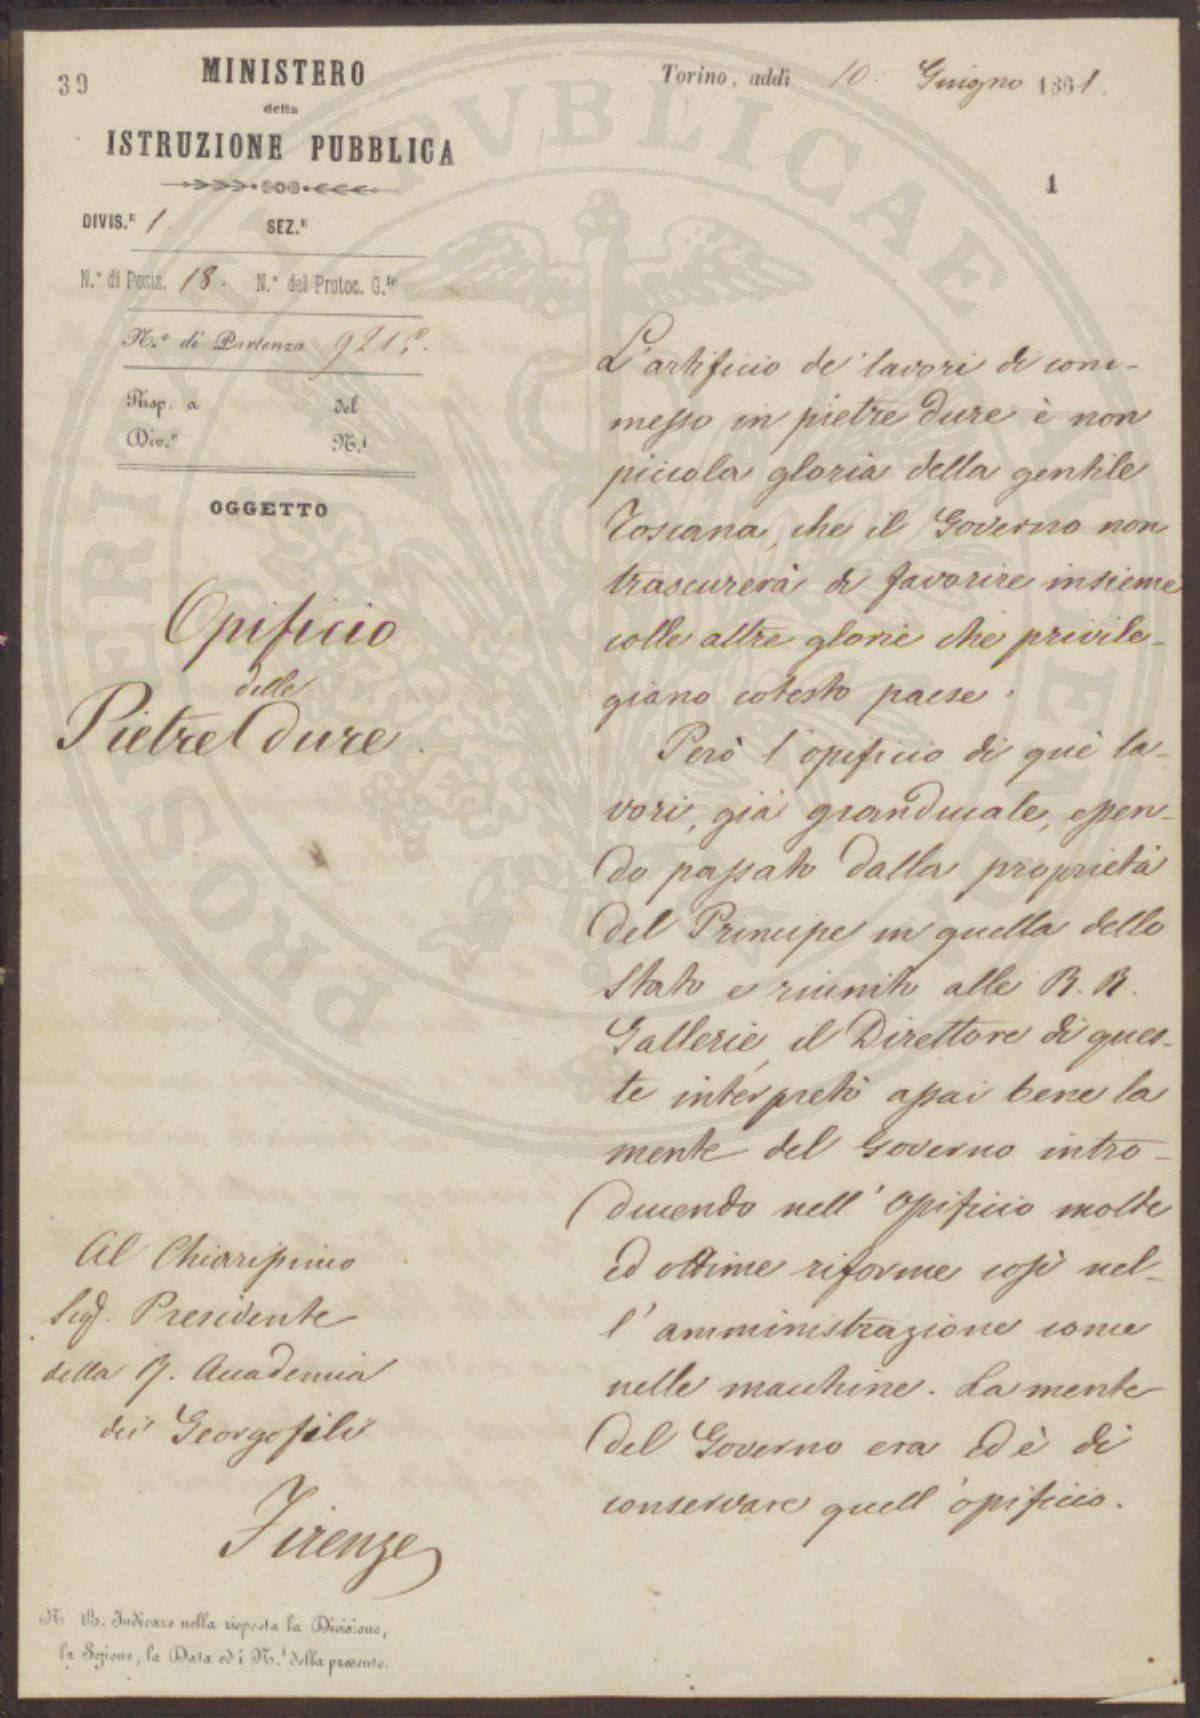 39
MINISTERO
della
ISTRUZIONE PUBBLICA
DIVIS.E 1. SEZ.E
N.° di Posiz. 18. N.° del Protoc. G.le
N.° di Partenza 921
Risp. a del
Div.e N.i
OGGETTO
Opificio
delle
Pietre dure.
Al Chiarissimo
Sigr. Presidente
della R. Accademia
dei Georgofili
Firenze
N. B. Indicare nella risposta la Divisione,
la Sezione, la Data ed i N.i della presente.
Torino, addì 10. Giugno 1861.
1
L'artificio de' lavori di com-
messo in pietre dure è non
piccola gloria della gentile
Toscana, che il Governo non
trascurerà di favorire insieme
colle altre glorie che privile-
giano cotesto paese.
Però l'opificio di què la-
vori, già granducale, essen-
do passato dalla proprietà
del Principe in quella dello
Stato e riunito alle R. R.
Gallerie, il Direttore di ques-
te interpretò assai bene la
mente del Governo intro-
ducendo nell' Opificio molte
ed ottime riforme così nel-
l' amministrazione come
nelle macchine. La mente
del Governo era ed è di
conservare quell' opificio.
PROSPERITATI PUBLICAE AUGENDAE